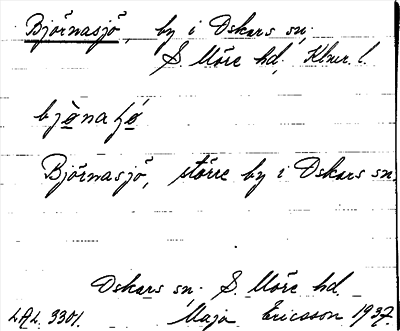 Björnasjö, by i Oskars sn,
S. Möre hd, Klmr l.
Björnasjö, större by i Oskars sn.
Oskars sn. S. Möre hd.
LAL. 3301. Maja Ericsson 1937.